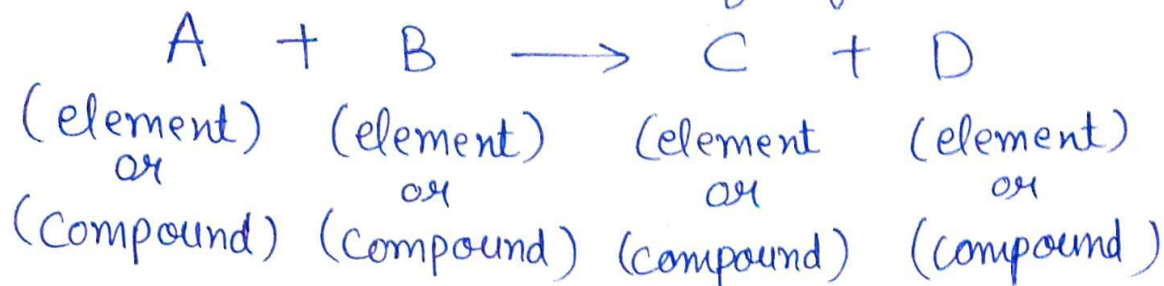 A + B ⟶ C + D
(element) (element) (element (element)
or or or or
(compound) (compound) (compound) (compound)